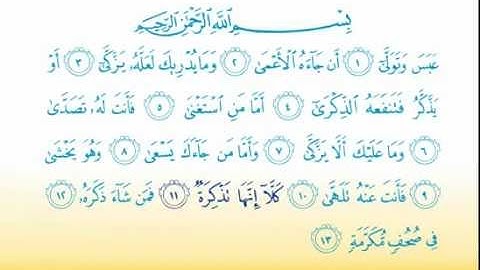 بِسْمِ اللَّهِ الرَّحْمَٰنِ الرَّحِيمِ
عَبَسَ وَتَوَلَّىٰٓ ١ أَن جَآءَهُ ٱلْأَعْمَىٰ ٢ وَمَا يُدْرِيكَ لَعَلَّهُۥ يَزَّكَّىٰٓ ٣ أَوْ
يَذَّكَّرُ فَتَنفَعَهُ ٱلذِّكْرَىٰٓ ٤ أَمَّا مَنِ ٱسْتَغْنَىٰ ٥ فَأَنتَ لَهُۥ تَصَدَّىٰ
٦ وَمَا عَلَيْكَ أَلَّا يَزَّكَّىٰ ٧ وَأَمَّا مَن جَآءَكَ يَسْعَىٰ ٨ وَهُوَ يَخْشَىٰ
٩ فَأَنتَ عَنْهُ تَلَهَّىٰ ١٠ كَلَّآ إِنَّهَا تَذْكِرَةٌ ١١ فَمَن شَآءَ ذَكَرَهُۥ ١٢
فِى صُحُفٍ مُّكَرَّمَةٍ ١٣